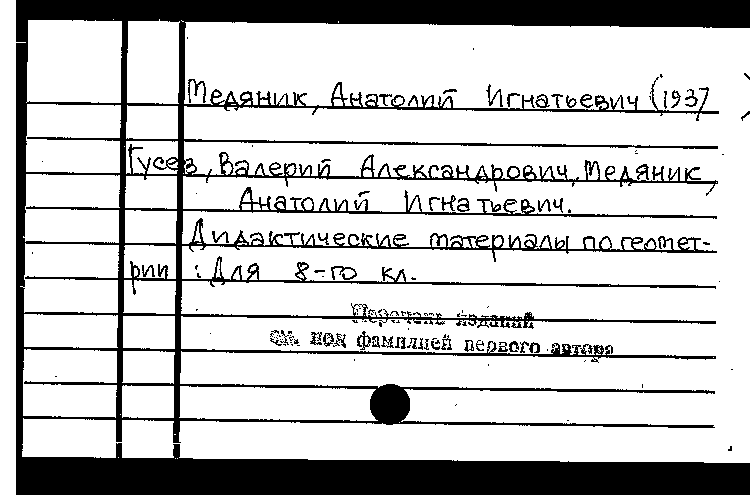 Медяник, Анатолий Игнатьевич (1937 )
Гусев, Валерий Александрович, Медяник,
Анатолий Игнатьевич.
Дидактические материалы по геомет-
рии : Для 8-го кл.
Перечень изданий
см. под фамилией первого автора